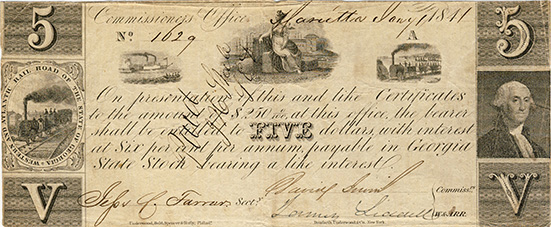 5
5
Commissioners Office, Marietta Jany 1 1841
No 1629
A
WESTERN AND ATLANTIC RAIL ROAD OF THE STATE OF GEORGIA
On presentation of this and like Certificates
to the amount of $250 at this office, the bearer
shall be entitled to FIVE dollars, with interest
at Six per cent per annum, payable in Georgia
State Stock bearing a like interest.
V
V
Secty
Commissrs
W&ARR.
Underwood, Bald, Spencer & Hufty, Philada.
New York.